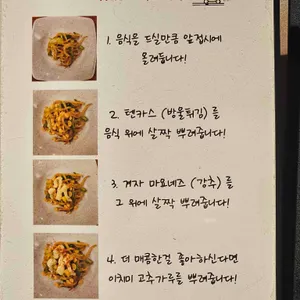 1. 음식을 드실만큼 앞접시에
올려둡니다!
2. 텐카스 (방울튀김) 를
음식 위에 살짝 뿌려줍니다!
3. 겨자 마요네즈 (강추) 를
그 위에 살짝 뿌려줍니다!
4. 더 매콤한걸 좋아하신다면
이치미 고추가루를 뿌려줍니다!